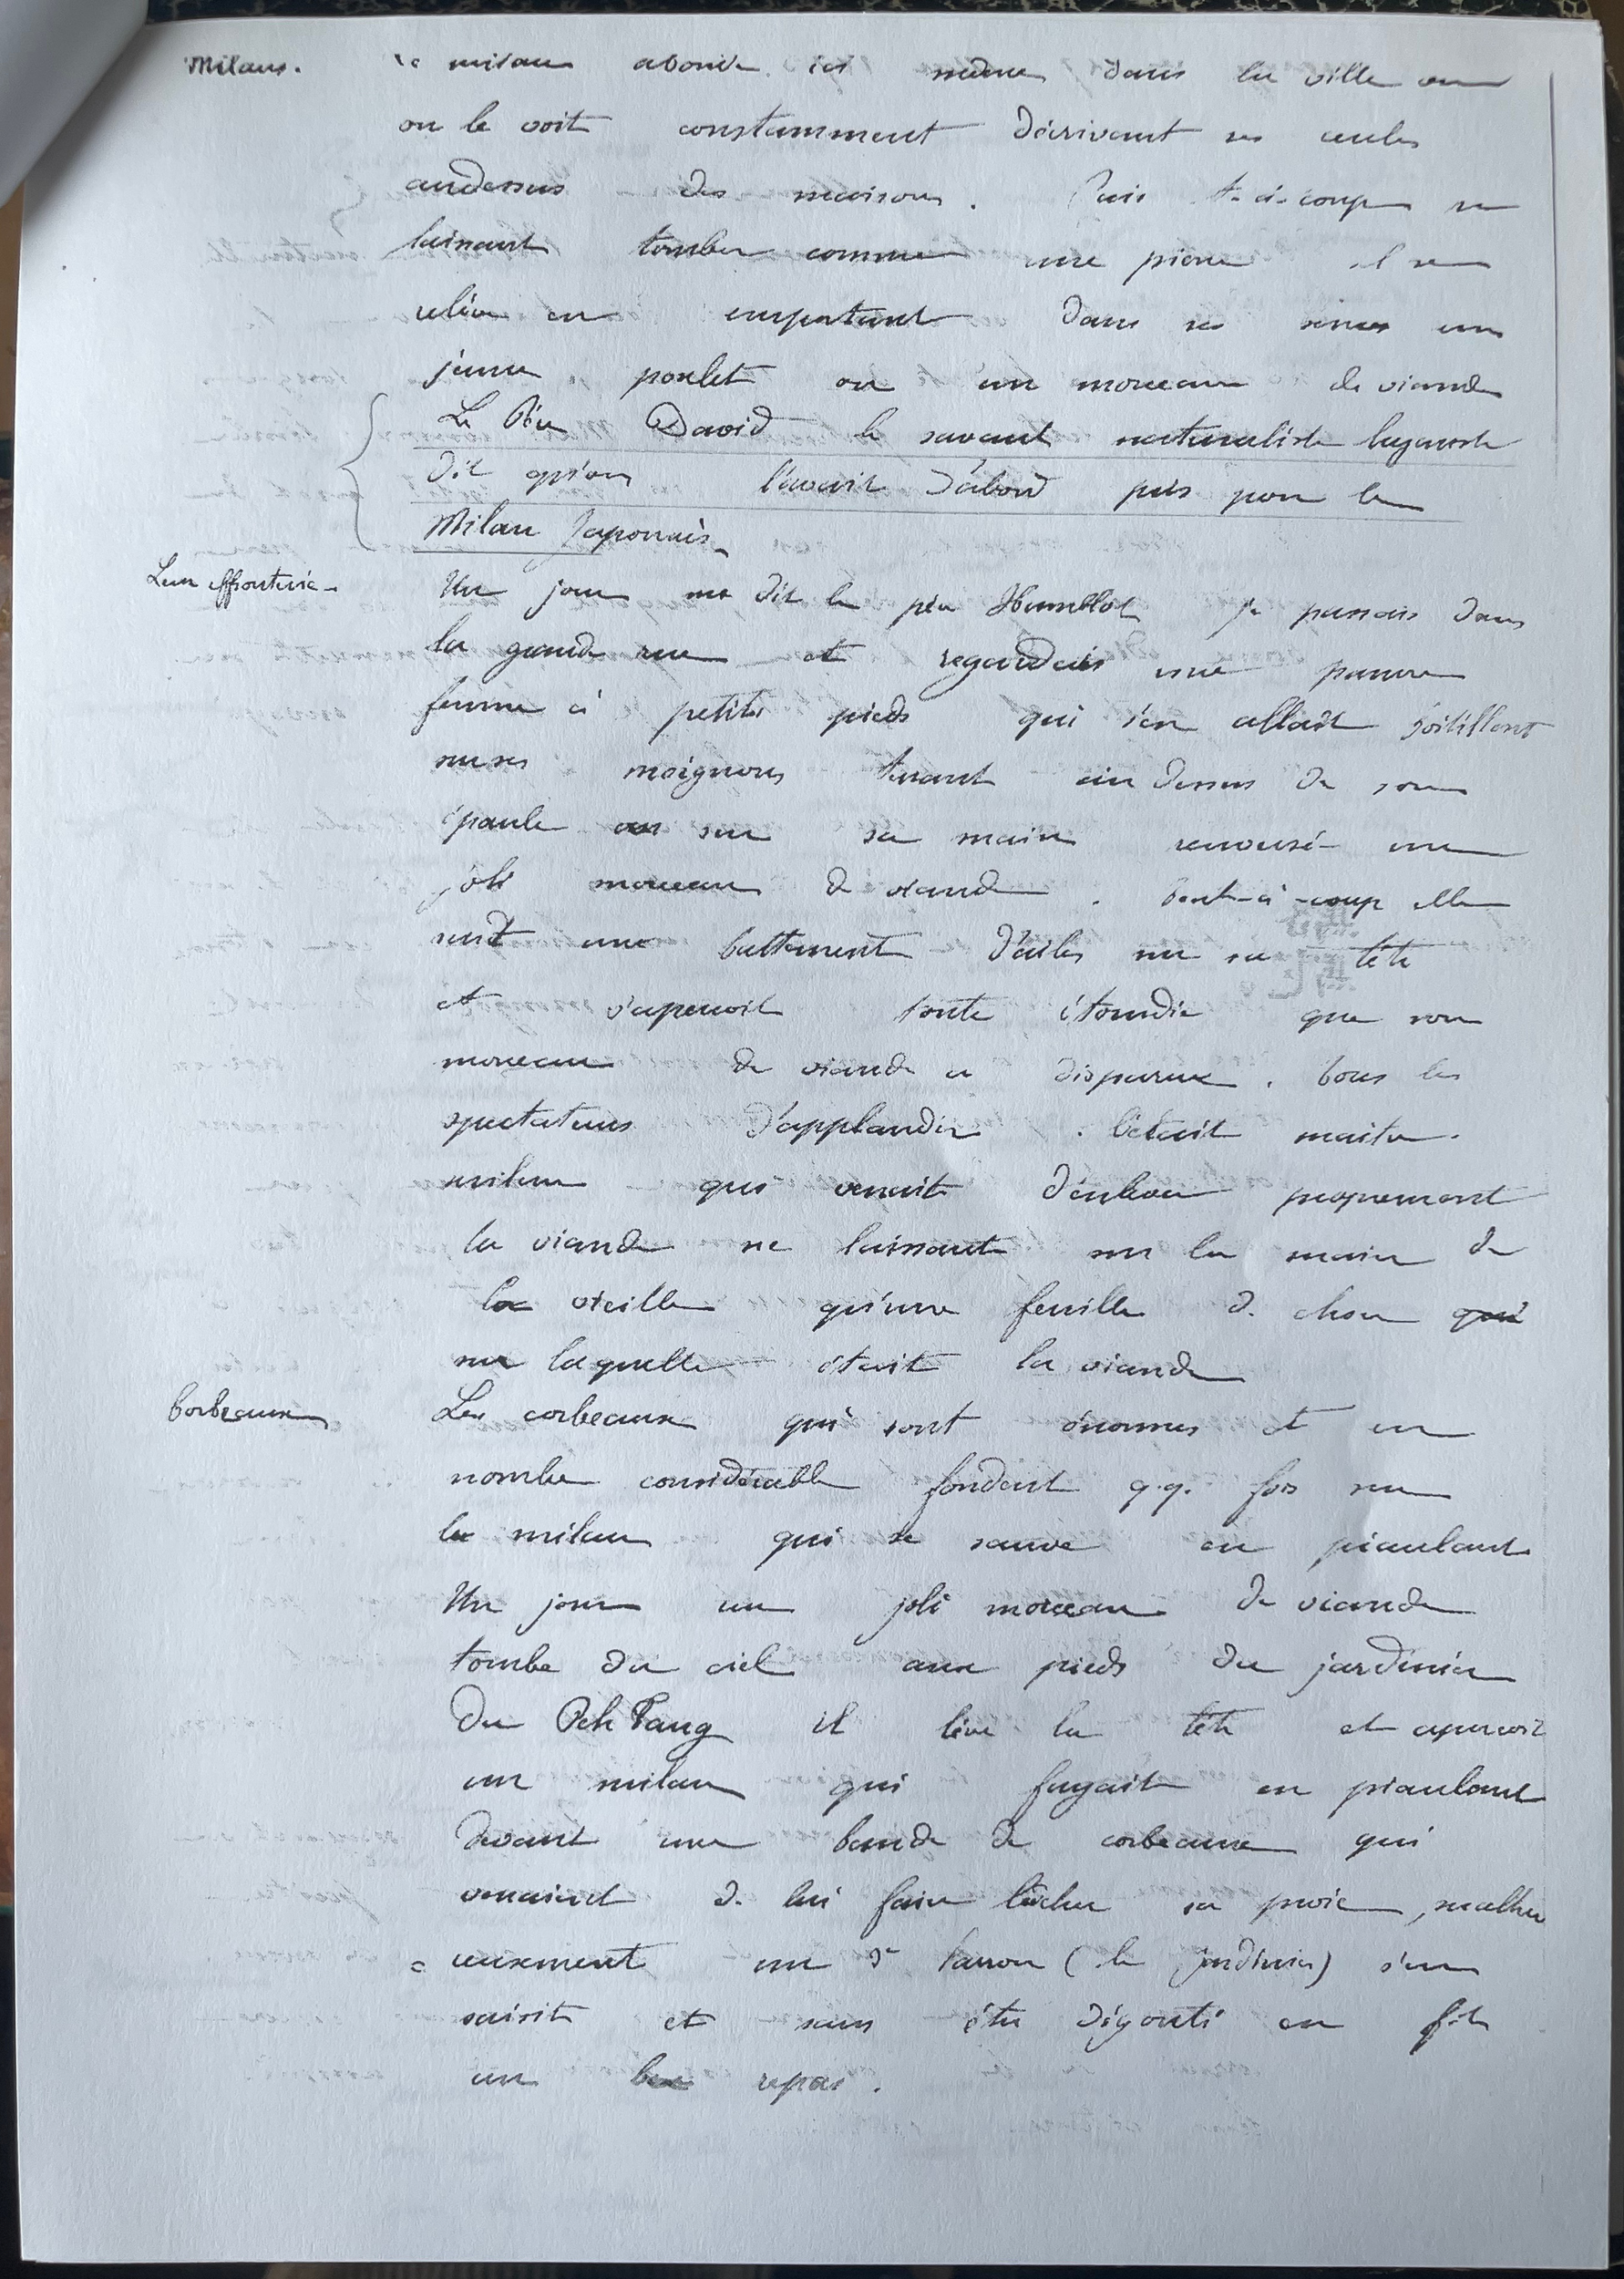 Milans.
Le milan abonde ici même dans la ville
on le voit constamment décrivant ses cercles
audessus des maisons. Puis t-à-coup se
laissant tomber comme une pierre il se
relève en emportant dans ses serres un
jeune poulet ou un morceau de viande
Le Père David le savant naturaliste lazariste
dit qu'on l'avait d'abord pris pour le
Milan Japonais
Leur effronterie -
Un jour me dit le père Humblot je passais dans
la grande rue et regardais une pauvre
femme à petits pieds qui s'en allait
sur ses moignons tenant au dessus de son
épaule sur sa main renversé un
joli morceau de viande. Tout-à-coup elle
sent un battement d'ailes sur sa tête
et s'aperçoit toute étourdie que son
morceau de viande a disparu. Tous les
spectateurs d'applaudir. C'était maitre
milan qui venait d'enlever proprement
la viande ne laissant sur la main de
la vieille qu'une feuille de chou qui
sur laquelle était la viande
Corbeaux
Les corbeaux qui sont énormes et en
nombre considérable fondent q.q. fois sur
le milan qui se sauve en piaulant
Un jour un joli morceau de viande
tombe du ciel aux pieds du jardinier
du Peh Tang il lève la tête et aperçoit
un milan qui fuyait en piaulant
devant une bande de corbeaux qui
venaient de lui faire lâcher sa proie, malheu
= reusement un 3e larron (le jardinier) s'en
saisit et sans être dégouté en fit
un repas.